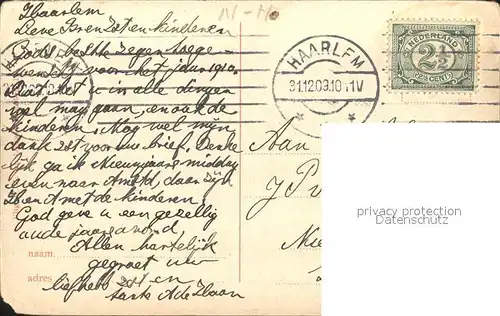 N-H
Haarlem
Lieve Broer Zet en kinderen
Gods beste zegen toege-
wenscht voor het jaar 1910.
Dat het u in alle dingen
wel mag gaan, en ook de
kinderen. Mag wel mijn
dank zet voor uw brief. Denke
lijk ga ik Nieuwjaars middag
even naar Amstd, daar zijn
en A met de kinderen.
God geve u een gezellig
oude jaarsavond,
Allen hartelijk
gegroet uw
liefheb zet en
tante A de Haan
naam
adres
HAARLEM
31.12.09.10-11V
NEDERLAND
2½
CENT
Aan
J P
privacy protection
Datenschutz